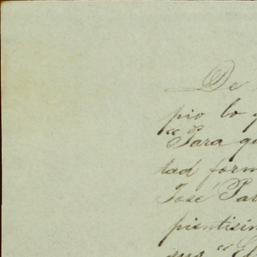 De
pio lo
"Para qu
tad form
José Par
pientisim
sus "El